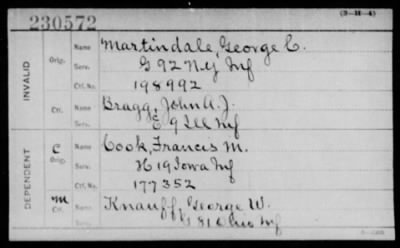 230572 (3-H-4)
INVALID
Orig. Name Martindale, George C.
Serv. G 92 N.Y. Inf
Ctf. No. 198992
Ctf. Name Bragg, John A. J.
Serv. E 9 Ill Inf
DEPENDENT
C Orig. Name Cook, Francis M.
Serv. H 19 Iowa Inf
Ctf. No. 177352
m Ctf. Name Knauff, George W.
G 81 Ohio Inf